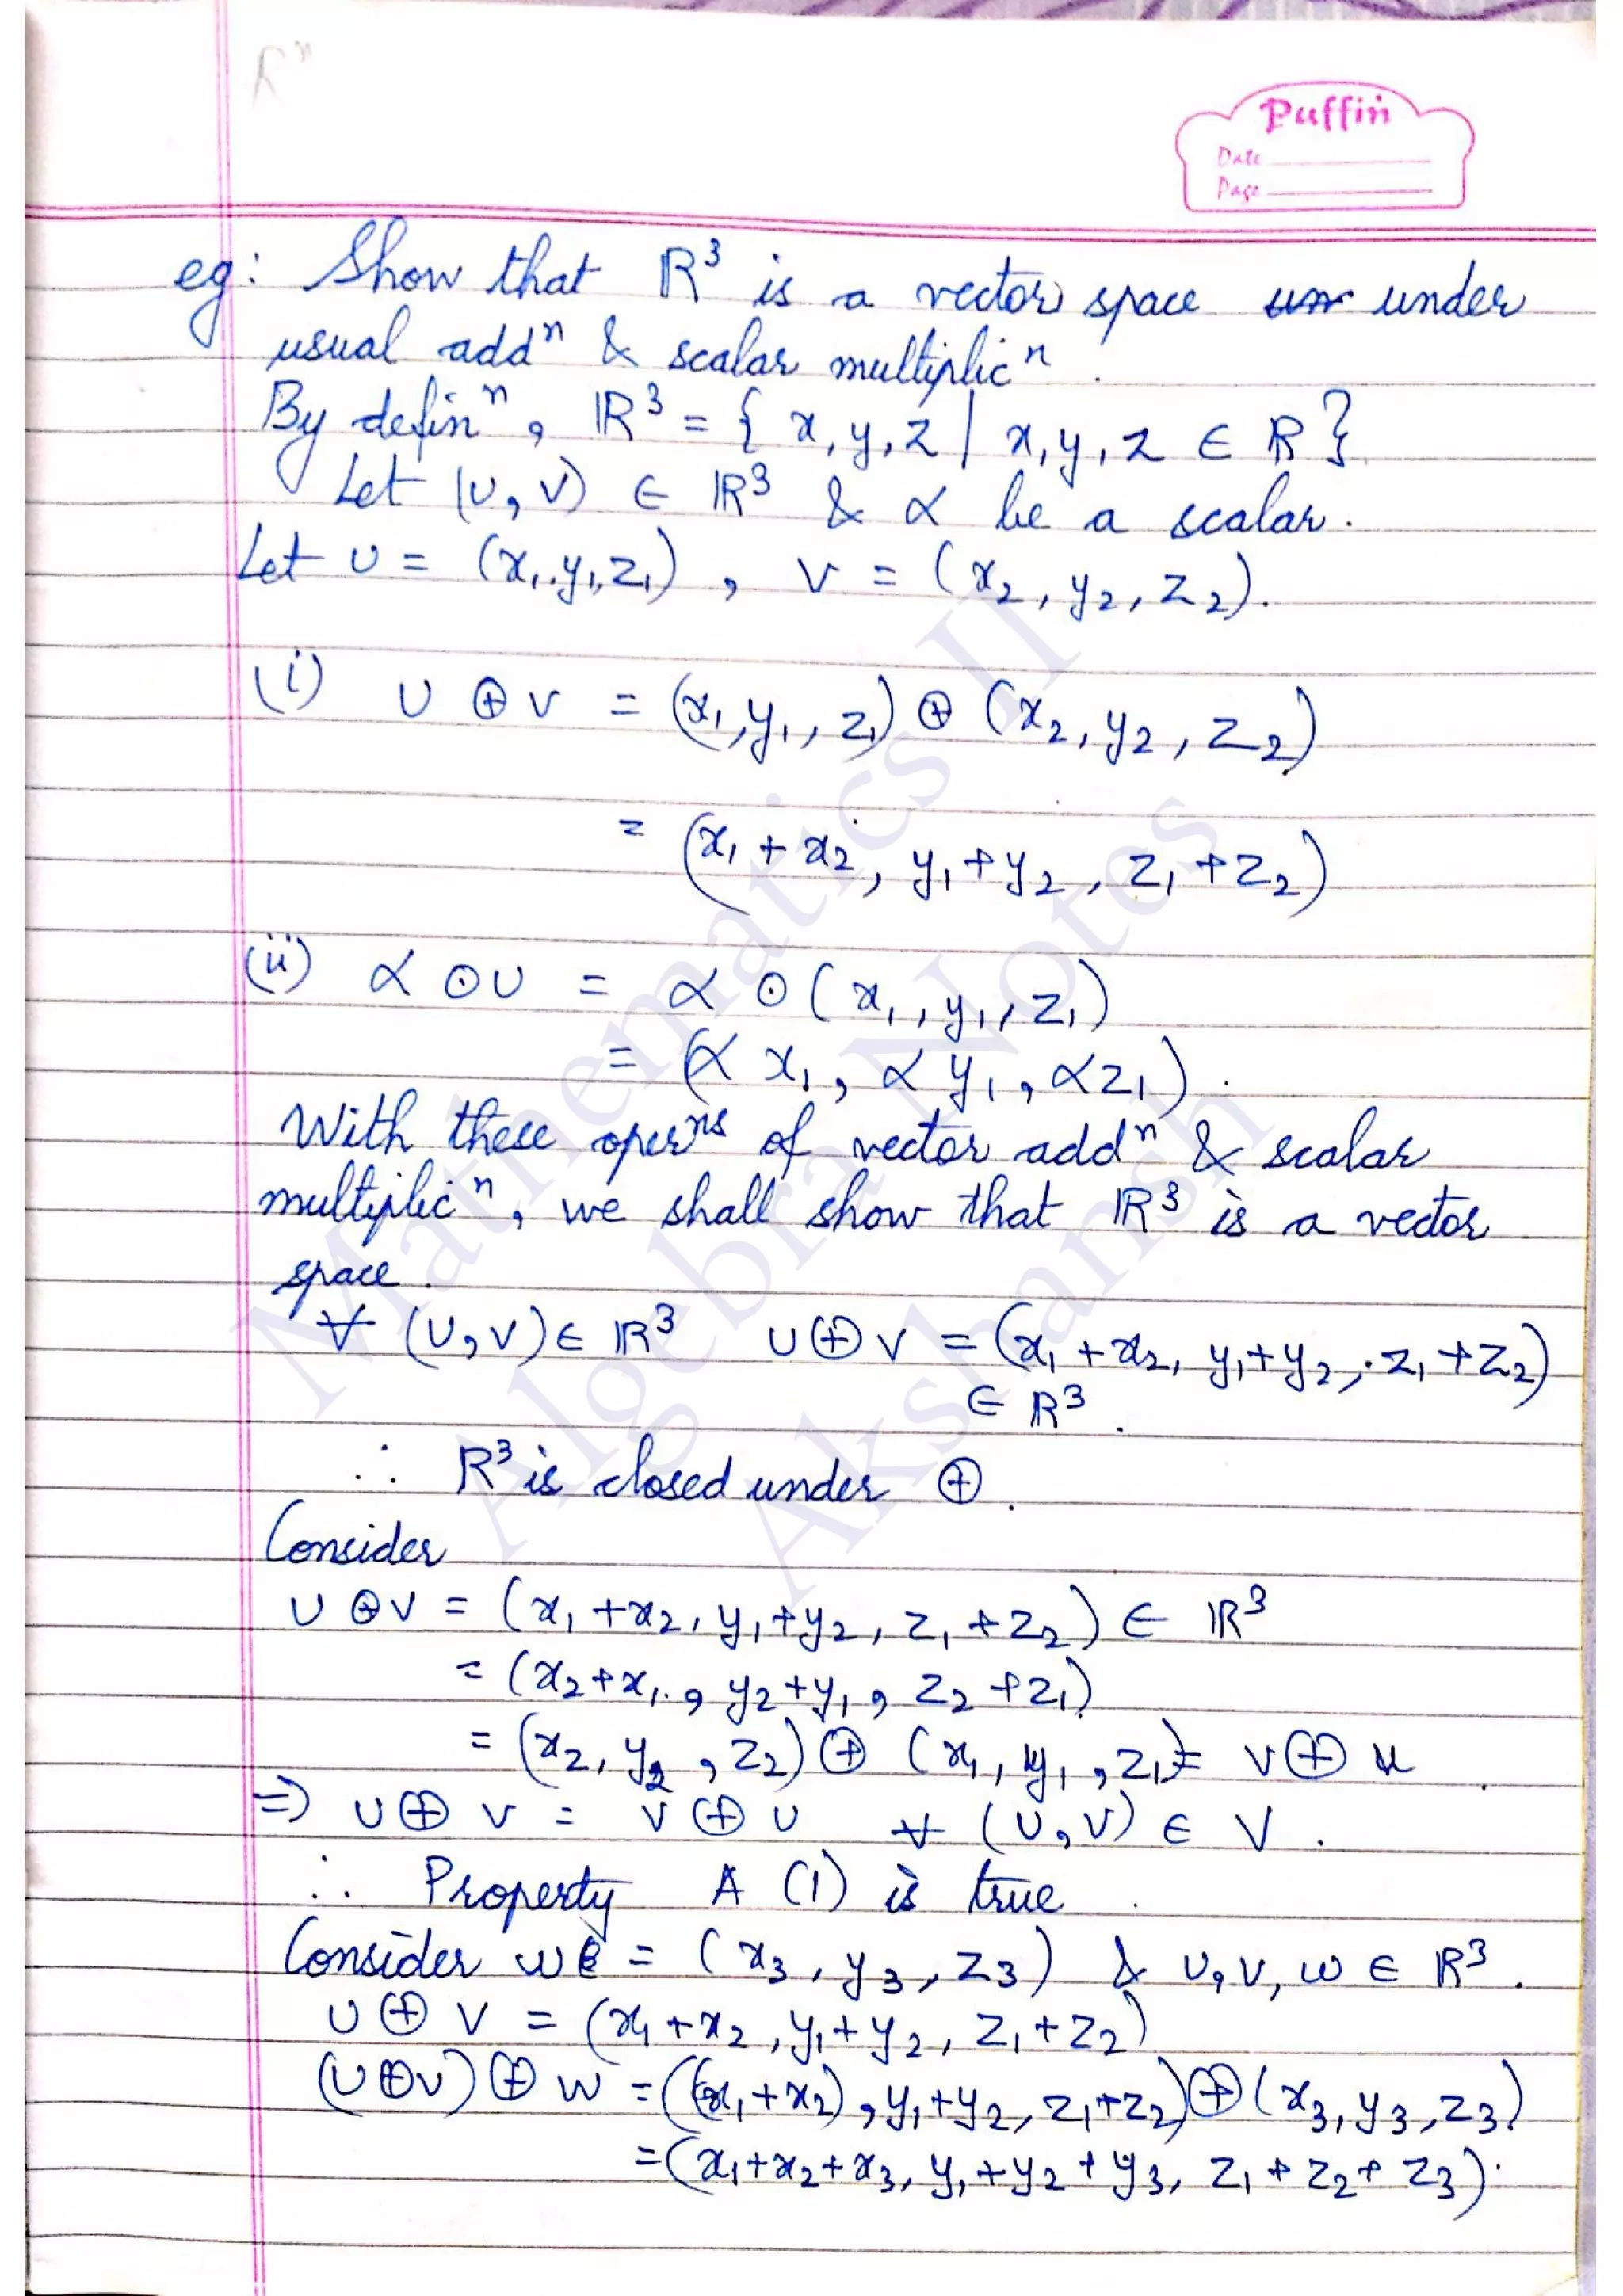 Rⁿ
Puffin
Date
Page
eg: Show that ℝ³ is a vector space un under
usual addⁿ & scalar multiplicⁿ.
By definⁿ, ℝ³ = { x, y, z | x, y, z ∈ ℝ }
Let (u, v) ∈ ℝ³ & α be a scalar.
Let u = (x₁, y₁, z₁), v = (x₂, y₂, z₂).
(i) u ⊕ v = (x₁, y₁, z₁) ⊕ (x₂, y₂, z₂)
= (x₁ + x₂, y₁ + y₂, z₁ + z₂)
(ii) α ⊙ u = α ⊙ (x₁, y₁, z₁)
= (α x₁, α y₁, α z₁).
With these operⁿˢ of vector addⁿ & scalar
multiplicⁿ, we shall show that ℝ³ is a vector
space.
∀ (u, v) ∈ ℝ³ u ⊕ v = (x₁ + x₂, y₁ + y₂, z₁ + z₂)
∈ ℝ³.
∴ ℝ³ is closed under ⊕.
Consider
u ⊕ v = (x₁ + x₂, y₁ + y₂, z₁ + z₂) ∈ ℝ³
= (x₂ + x₁, y₂ + y₁, z₂ + z₁)
= (x₂, y₂, z₂) ⊕ (x₁, y₁, z₁) = v ⊕ u.
⇒ u ⊕ v = v ⊕ u ∀ (u, v) ∈ V.
∴ Property A (1) is true.
Consider w = (x₃, y₃, z₃) & u, v, w ∈ ℝ³.
u ⊕ v = (x₁ + x₂, y₁ + y₂, z₁ + z₂)
(u ⊕ v) ⊕ w = ((x₁ + x₂), y₁ + y₂, z₁ + z₂) ⊕ (x₃, y₃, z₃)
= (x₁ + x₂ + x₃, y₁ + y₂ + y₃, z₁ + z₂ + z₃).
Mathematics II
Algebra Notes
Akshansh